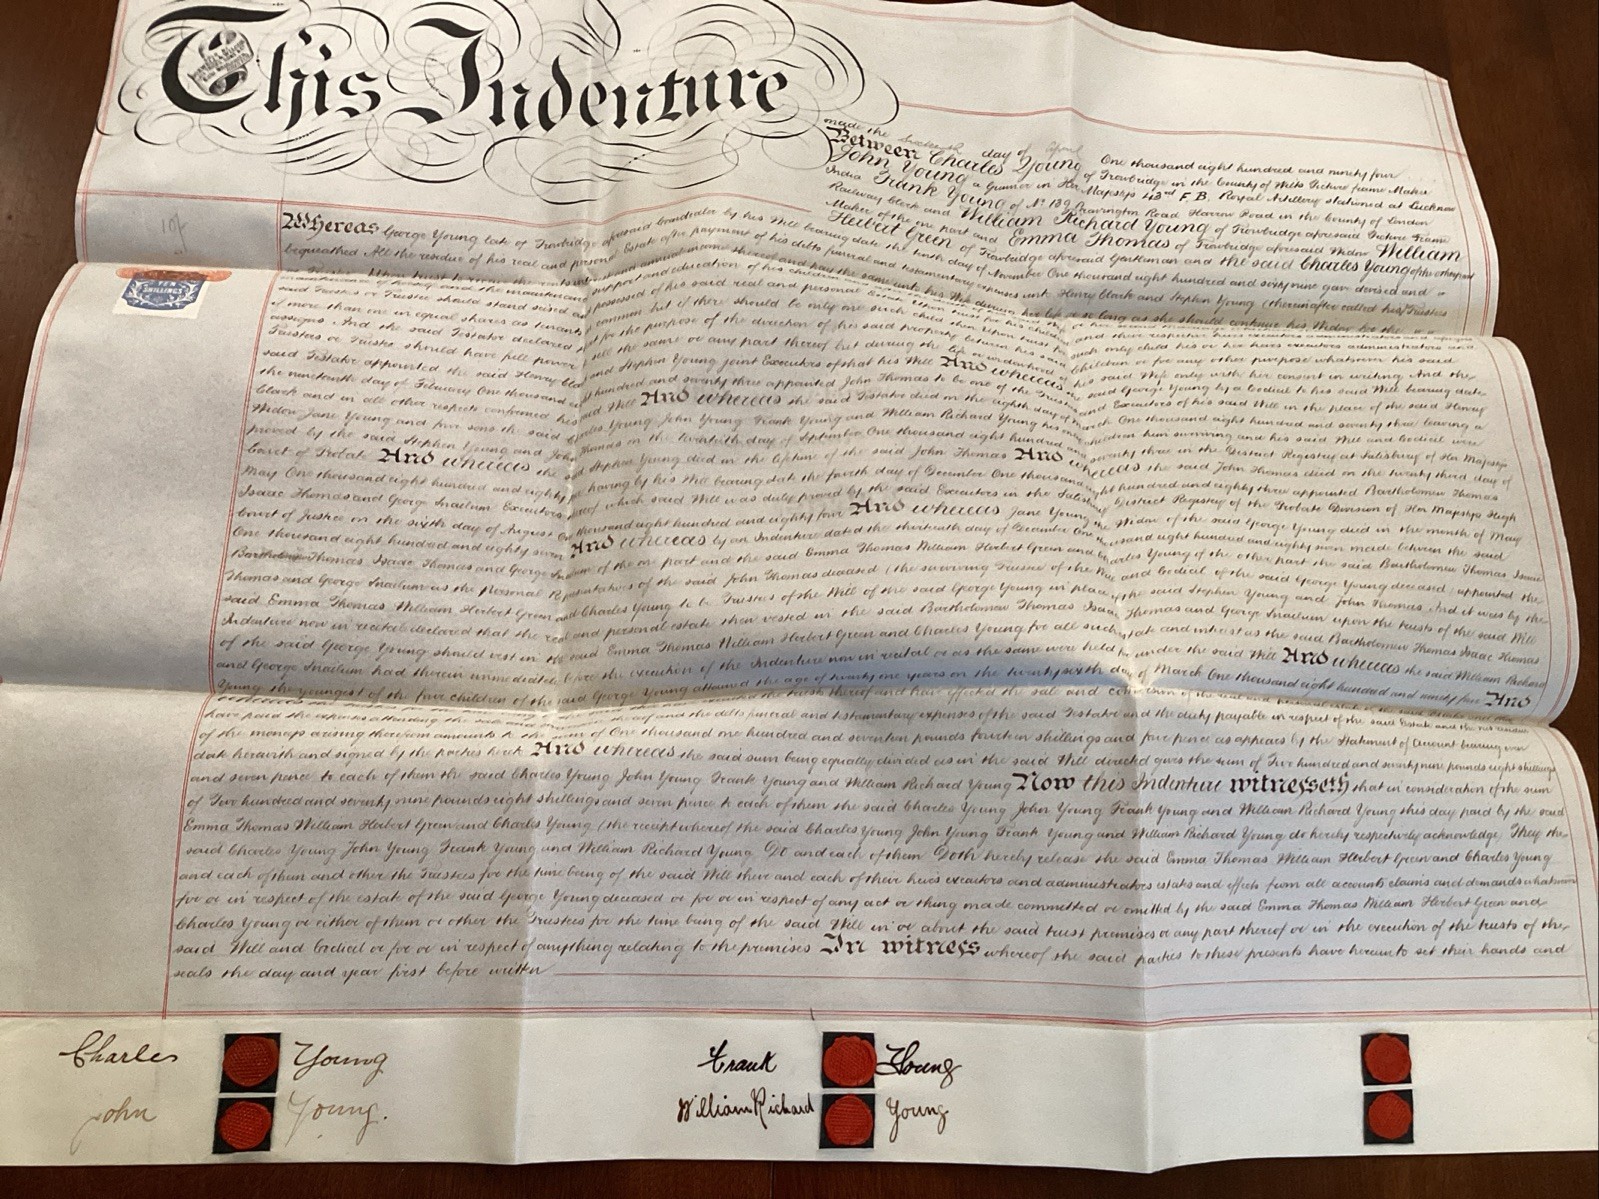 This Indenture
made the day of April One thousand eight hundred and ninety four
Between Charles Young of Trowbridge in the County of Wilts Picture frame Maker
John Young a Gunner in Her Majestys 43rd F.B. Royal Artillery stationed at Lucknow
India Frank Young of No 139 Road Harrow Road in the County of London
Railway Clerk and William Richard Young of Trowbridge aforesaid Picture Frame
Maker of the one part and Emma Thomas of Trowbridge aforesaid Widow William
Herbert Green of Trowbridge aforesaid Gentleman and the said Charles Young of the other part
10/-
Whereas George Young late of Trowbridge aforesaid by his Will bearing date the tenth day of November One thousand eight hundred and sixty nine gave devised and
bequeathed All the residue of his real and personal Estate after payment of his debts funeral and testamentary expenses unto Henry Clark and Stephen Young (thereinafter called his Trustees
TEN
SHILLINGS
said Trustees or Trustee should stand possessed of his said real and personal
if more than one in equal shares as tenants in common but if there should be only one such child then Upon trust for such only child his or her heirs executors administrators and
assigns And the said Testator declared that for the purpose of the division of his said property between his said children or for any other purpose whatsoever his said
Trustees or Trustee should have full power to sell the same or any part thereof but during the life or widowhood of his said Wife only with her consent in writing And the
said Testator appointed the said Henry Clark and Stephen Young joint Executors of that his Will And whereas the said George Young by a Codicil to his said Will bearing date
the nineteenth day of February One thousand eight hundred and seventy three appointed John Thomas to be one of the Trustees and Executors of his said Will in the place of the said Henry
Clark and in all other respects confirmed his said Will And whereas the said Testator died on the eighth day of March One thousand eight hundred and seventy three leaving a
Widow Jane Young and four sons the said Charles Young John Young Frank Young and William Richard Young his only children him surviving and his said Will and Codicil were
proved by the said Stephen Young and John Thomas on the twentieth day of September One thousand eight hundred and seventy three in the District Registry at Salisbury of Her Majestys
Court of Probate And whereas the said Stephen Young died in the lifetime of the said John Thomas And whereas the said John Thomas died on the twenty third day of
May One thousand eight hundred and eighty having by his Will bearing date the fourth day of December One thousand eight hundred and eighty three appointed Bartholomew Thomas
Isaac Thomas and George Snailum Executors thereof which said Will was duly proved by the said Executors in the Salisbury District Registry of the Probate Division of Her Majestys High
Court of Justice on the sixth day of August One thousand eight hundred and eighty four And whereas Jane Young the Widow of the said George Young died in the month of May
One thousand eight hundred and eighty seven And whereas by an Indenture dated the thirteenth day of December One thousand eight hundred and eighty seven made between the said
Bartholomew Thomas Isaac Thomas and George Snailum of the one part and the said Emma Thomas William Herbert Green and Charles Young of the other part the said Bartholomew Thomas Isaac
Thomas and George Snailum as the personal Representatives of the said John Thomas deceased (the surviving Trustee of the Will and Codicil of the said George Young deceased) appointed the
said Emma Thomas William Herbert Green and Charles Young to be Trustees of the Will of the said George Young in place of the said Stephen Young and John Thomas And it was by the
Indenture now in recital declared that the real and personal estate then vested in the said Bartholomew Thomas Isaac Thomas and George Snailum upon the trusts of the said Will
of the said George Young should vest in the said Emma Thomas William Herbert Green and Charles Young for all such estate and interest as the said Bartholomew Thomas Isaac Thomas
and George Snailum had therein immediately before the execution of the Indenture now in recital or as the same were held by under the said Will And whereas the said William Richard
Young the youngest of the four children of the said George Young attained the age of twenty one years on the twenty sixth day of March One thousand eight hundred and ninety four And
have paid the expenses attending the sale and thereof and the debts funeral and testamentary expenses of the said Testator and the duty payable in respect of the said Estate and the net residue
of the moneys arising therefrom amounts to the sum of One thousand one hundred and seventeen pounds fourteen shillings and four pence as appears by the Statement of Account bearing even
date herewith and signed by the parties hereto And whereas the said sum being equally divided as in the said Will directed gives the sum of Two hundred and seventy nine pounds eight shillings
and seven pence to each of them the said Charles Young John Young Frank Young and William Richard Young Now this Indenture witnesseth that in consideration of the sum
of Two hundred and seventy nine pounds eight shillings and seven pence to each of them the said Charles Young John Young Frank Young and William Richard Young this day paid by the said
Emma Thomas William Herbert Green and Charles Young (the receipt whereof the said Charles Young John Young Frank Young and William Richard Young do hereby respectively acknowledge) They the
said Charles Young John Young Frank Young and William Richard Young Do and each of them Doth hereby release the said Emma Thomas William Herbert Green and Charles Young
and each of them and other the Trustees for the time being of the said Will there and each of their heirs executors and administrators estates and effects from all accounts claims and demands whatsoever
for or in respect of the estate of the said George Young deceased or for or in respect of any act or thing made committed or omitted by the said Emma Thomas William Herbert Green and
Charles Young or either of them or other the Trustees for the time being of the said Will in or about the said trust premises or any part thereof or in the execution of the trusts of the
said Will and Codicil or for or in respect of anything relating to the premises In witness whereof the said parties to these presents have hereunto set their hands and
seals the day and year first before written
Charles Young Frank Young
John Young. William Richard Young